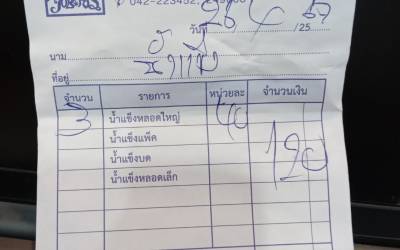 042-223452, 249
วันที่ 26 / 4 / 25 67
นาม
ที่อยู่
จำนวน รายการ หน่วยละ จำนวนเงิน
3 น้ำแข็งหลอดใหญ่ 40 120
น้ำแข็งแพ็ค
น้ำแข็งบด
น้ำแข็งหลอดเล็ก